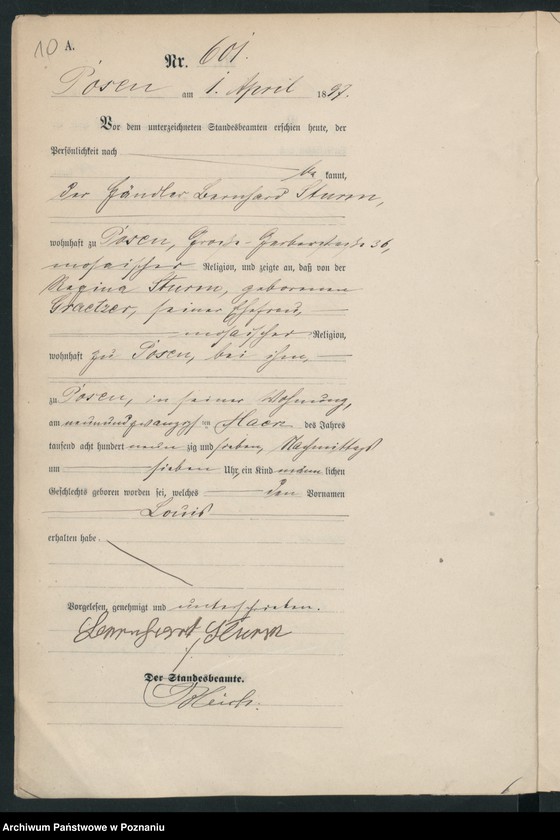 10 A.
Nr. 601.
Posen am 1. April 1897.
Vor dem unterzeichneten Standesbeamten erschien heute, der
Persönlichkeit nach
be kannt,
der Händler Bernhard Sturm,
wohnhaft zu Posen, Große-Gerberstraße 36,
mosaischer Religion, und zeigte an, daß von der
Regina Sturm, geborenen
Graetzer, seiner Ehefrau,
mosaischer Religion,
wohnhaft zu Posen, bei ihm,
zu Posen, in seiner Wohnung,
am neunundzwanzigsten Maerz des Jahres
tausend acht hundert neun zig und sieben, Nachmittags
um sieben Uhr, ein Kind männ lichen
Geschlechts geboren worden sei, welches den Vornamen
Louis
erhalten habe.
Vorgelesen, genehmigt und unterschrieben.
Bernhard Sturm
Der Standesbeamte.
Archiwum Państwowe w Poznaniu